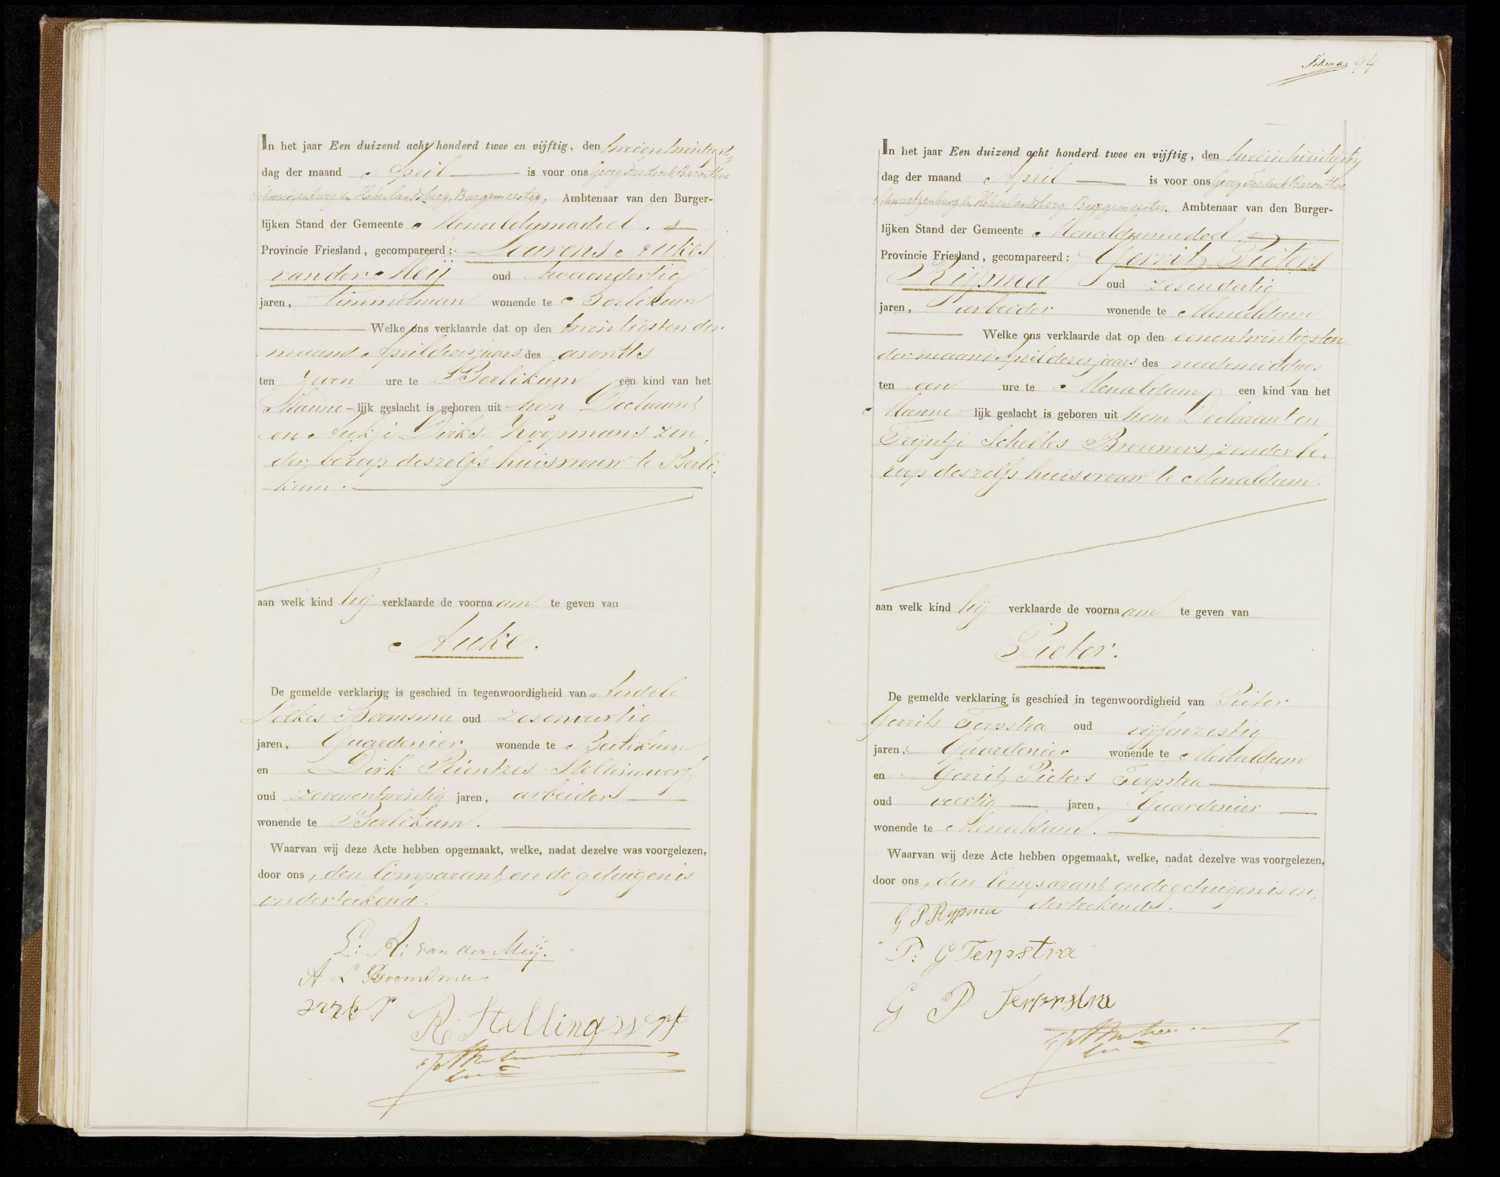 In het jaar Een duizend acht honderd twee en vijftig, den tweeentwintigste
dag der maand April is voor ons Georg Frederik Baron thoe
Schwartzenberg & Hohenlandsberg, Burgemeester, Ambtenaar van den Burger-
lijken Stand der Gemeente Menaldumadeel.
Provincie Friesland, gecompareerd: Lourens Aukes
van der Meij oud tweeendertig
jaren, Timmerman wonende te Berlikum
Welke ons verklaarde dat op den twintigsten der
maand April dezes jaars des avonds
ten zeven ure te Berlikum een kind van het
Manne-lijk geslacht is geboren uit hem Declarant
en Aukje Dirks Koopmans zon
der beroep deszelfs huisvrouw te Berli-
kum.
aan welk kind hij verklaarde de voornaam te geven van
Auke.
De gemelde verklaring is geschied in tegenwoordigheid van
Boomsma oud zesenveertig
jaren, Guardenier wonende te Berlikum
en Dirk Rientzes Stellingwerf
oud zevenentwintig jaren, arbeider
wonende te Berlikum.
Waarvan wij deze Acte hebben opgemaakt, welke, nadat dezelve was voorgelezen,
door ons, den Comparant en de getuigen is
onderteekend.
L: A: van der Meij.
A L Boomsma
R Stellingwerf
In het jaar Een duizend acht honderd twee en vijftig, den tweeentwintigste
dag der maand April is voor ons Georg Frederik Baron thoe
Schwartzenberg & Hohenlandsberg Burgemeester, Ambtenaar van den Burger-
lijken Stand der Gemeente Menaldumadeel
Provincie Friesland, gecompareerd: Gerrit Pieters
Rijpma oud zesendertig
jaren, arbeider wonende te Menaldum
Welke ons verklaarde dat op den eenentwintigsten
der maand April dezes jaars des nademiddags
ten een ure te Menaldum een kind van het
Manne lijk geslacht is geboren uit hem Declarant en
Trijntje Scheltes Brouwers, zonder be-
roep deszelfs huisvrouw te Menaldum.
aan welk kind hij verklaarde de voornaam te geven van
Pieter.
De gemelde verklaring is geschied in tegenwoordigheid van Pieter
Gerrits Terpstra oud vijfenzestig
jaren, Guardenier wonende te Menaldum
en Gerrit Pieters Terpstra
oud veertig jaren, Guardenier
wonende te Menaldum.
Waarvan wij deze Acte hebben opgemaakt, welke, nadat dezelve was voorgelezen,
door ons, den Comparant en de getuigen is on-
derteekend.
G P Rypma
P: G Terpstra
G P Terpstra